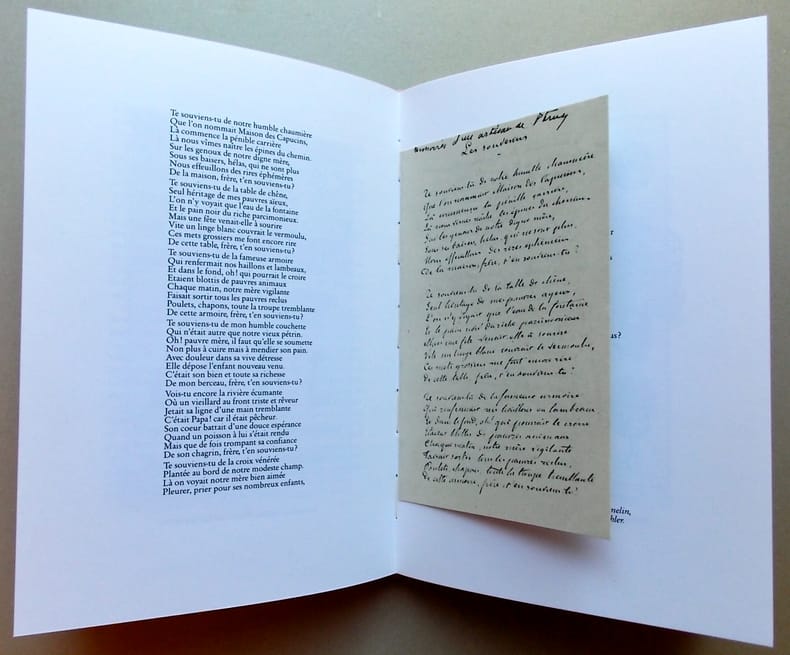 Te souviens-tu de notre humble chaumière
Que l'on nommait Maison des Capucins,
Là commence la pénible carrière
Là nous vîmes naître les épines du chemin.
Sur les genoux de notre digne mère,
Sous ses baisers, hélas, qui ne sont plus
Nous effeuillons des rires éphémères
De la maison, frère, t'en souviens-tu?
Te souviens-tu de la table de chêne,
Seul héritage de mes pauvres aïeux,
L'on n'y voyait que l'eau de la fontaine
Et le pain noir du riche parcimonieux.
Mais une fête venait-elle à sourire
Vite un linge blanc couvrait le vermoulu,
Ces mets grossiers me font encore rire
De cette table, frère, t'en souviens-tu?
Te souviens-tu de la fameuse armoire
Qui renfermait nos haillons et lambeaux,
Et dans le fond, oh! qui pourrait le croire
Etaient blottis de pauvres animaux
Chaque matin, notre mère vigilante
Faisait sortir tous les pauvres reclus
Poulets, chapons, toute la troupe tremblante
De cette armoire, frère, t'en souviens-tu?
Te souviens-tu de mon humble couchette
Qui n'était autre que notre vieux pétrin.
Oh! pauvre mère, il faut qu'elle se soumette
Non plus à cuire mais à mendier son pain.
Avec douleur dans sa vive détresse
Elle dépose l'enfant nouveau venu.
C'était son bien et toute sa richesse
De mon berceau, frère, t'en souviens-tu?
Vois-tu encore la rivière écumante
Où un vieillard au front triste et rêveur
Jetait sa ligne d'une main tremblante
C'était Papa! car il était pêcheur.
Son coeur battait d'une douce espérance
Quand un poisson à lui s'était rendu
Mais que de fois trompant sa confiance
De son chagrin, frère, t'en souviens-tu?
Te souviens-tu de la croix vénérée
Plantée au bord de notre modeste champ.
Là on voyait notre mère bien aimée
Pleurer, prier pour ses nombreux enfants,
d'un artisan de
Les souvenirs
Te souviens-tu de notre humble chaumière
Que l'on nommait Maison des Capucins,
La commence la pénible carrière
Là nous vîmes naître les épines du chemin.
Sur les genoux de notre digne mère,
Sous ses baisers, hélas, qui ne sont plus.
Nous effeuillons des rires éphémères
De la maison, frère, t'en souviens-tu?
Te souviens-tu de la table de chêne,
Seul héritage de mes pauvres ayeux,
L'on n'y voyait que l'eau de la fontaine
Et le pain noir du riche parcimonieux
Mais une fête venait-elle à sourire
Vite un linge blanc couvrait le vermoulu,
Ces mets grossiers me font encore rire
De cette table, frère, t'en souviens-tu?
Te souviens-tu de la fameuse armoire
Qui renfermait nos haillons ou lambeaux
Et dans le fond, oh! qui pourrait le croire
Etaient blottis de pauvres animaux
Chaque matin, notre mère vigilante
Faisait sortir tous les pauvres reclus,
Poulets, chapons, toute la troupe tremblante
De cette armoire, frère, t'en souviens-tu!
us?
nelin,
hler.